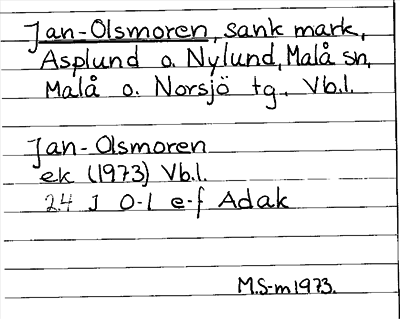 Jan-Olsmoren, sank mark,
Asplund o. Nylund, Malå sn,
Malå o. Norsjö tg. Vb.l.
Jan-Olsmoren
ek (1973) Vb.l.
24 J 0-1 e-f Adak
M.S-m 1973.